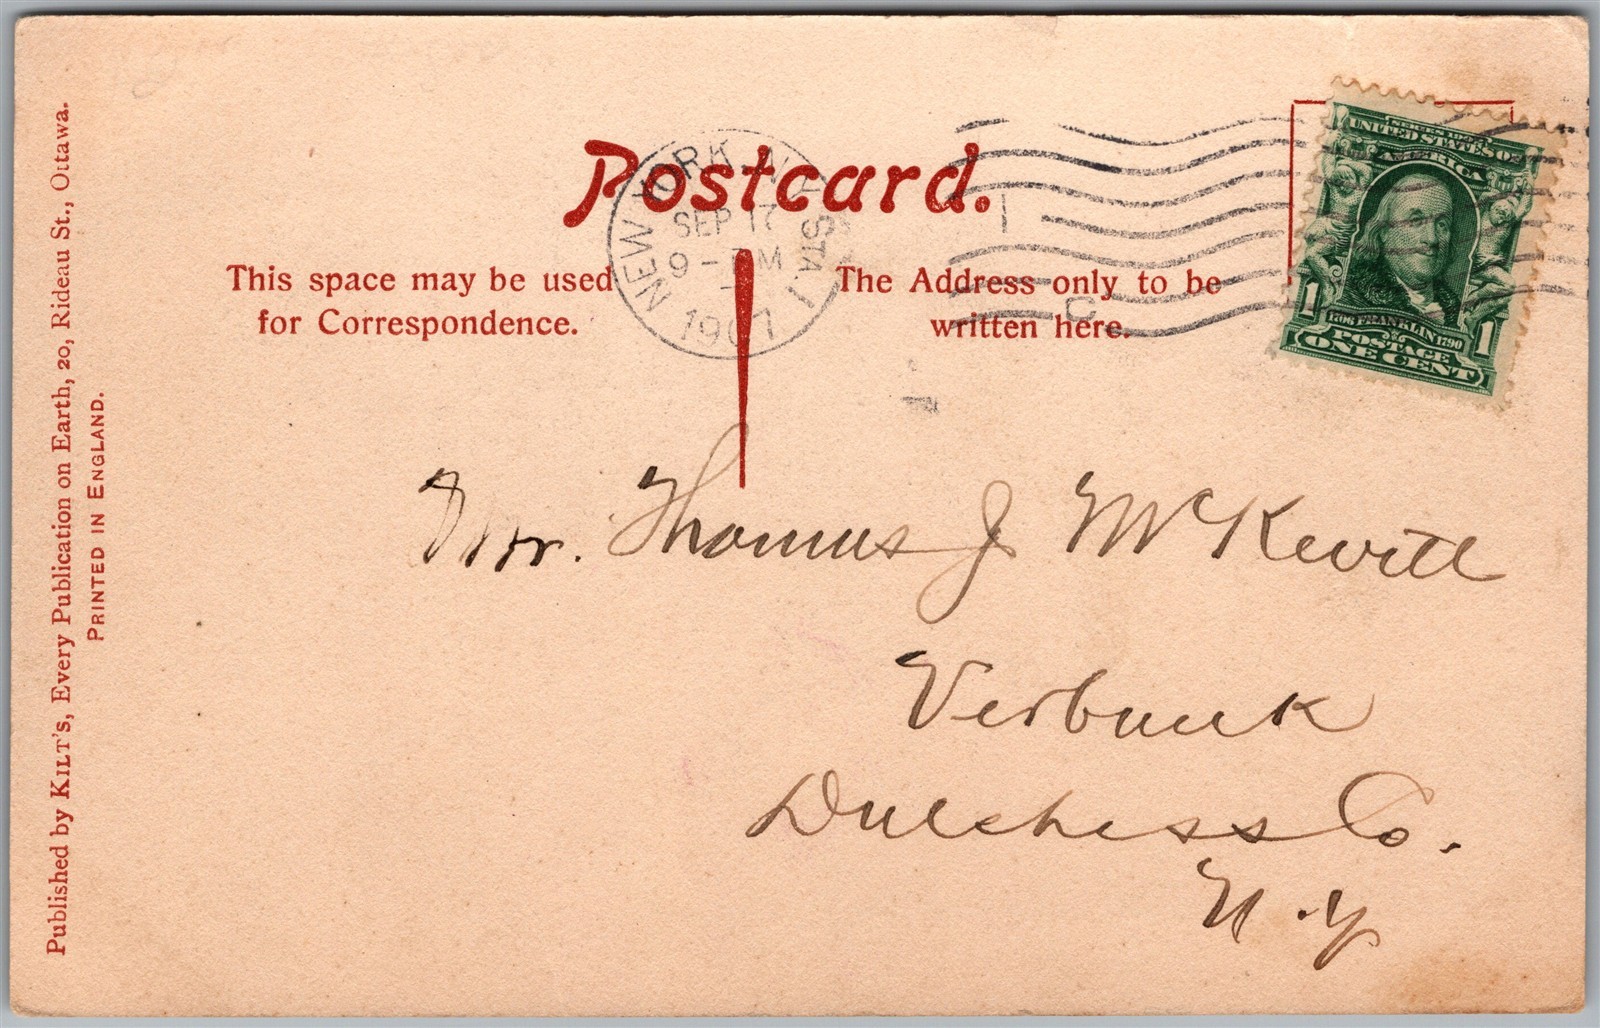 Postcard.
This space may be used
for Correspondence.
The Address only to be
written here.
NEW YORK, N.Y. STA. 1
SEP 17
9 -
1907
1
C
SERIES 1902
UNITED STATES OF
AMERICA
1706 FRANKLIN 1790
1 1
POSTAGE
ONE CENT
Mr. Thomas J McKevitt
Verbank
Dutchess Co.
N.Y
Published by KILT'S, Every Publication on Earth, 20, Rideau St., Ottawa.
PRINTED IN ENGLAND.